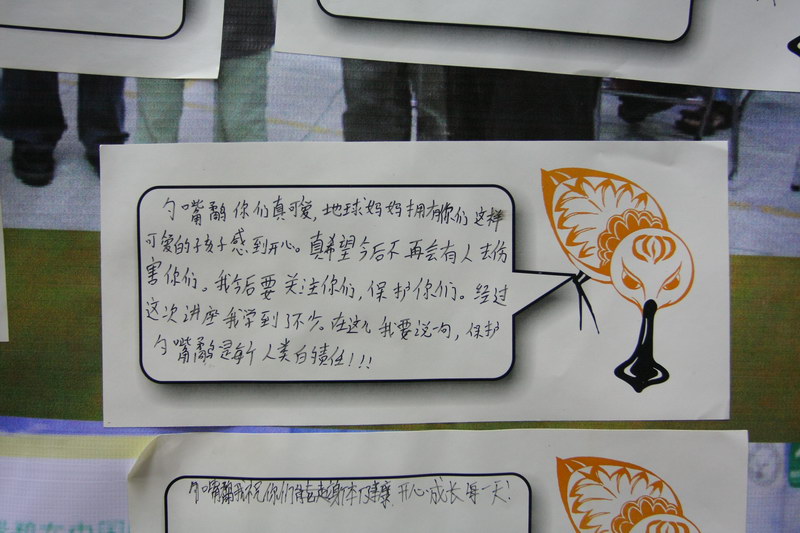 勺嘴鹬你们真可爱，地球妈妈拥有你们这样
可爱的孩子感到开心。真希望今后不再会有人去伤
害你们。我今后要关注你们，保护你们。经过
这次讲座我学到了不少。在这儿我要说一句，保护
勺嘴鹬是每个人类的责任！！！
勺嘴鹬我祝你们身体健康，开心成长每一天！
在中国